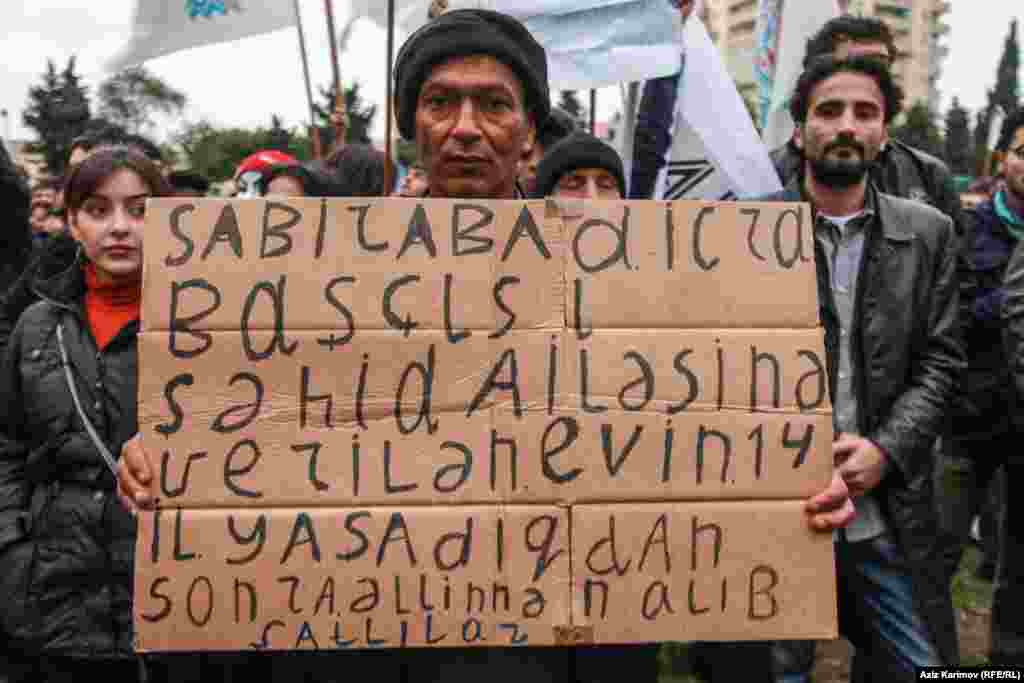 SABİRABAd.İCRa
BaşçısI
şəhid Ailəsinə
verilən.evin.14
İL.YASAdıqdAn
SonrA.əllinnən alıB
Aziz Karimov (RFE/RL)